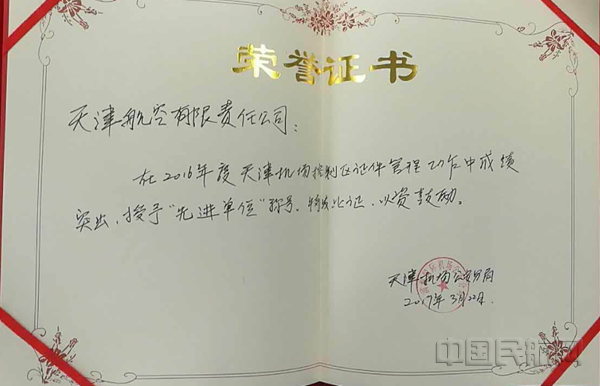 荣誉证书
天津航空有限责任公司:
在2016年度天津机场控制区证件管理工作中成绩
突出,授予"先进单位"称号。特发此证,以资鼓励。
天津机场公安分局
2017年3月22日.
中国民航网